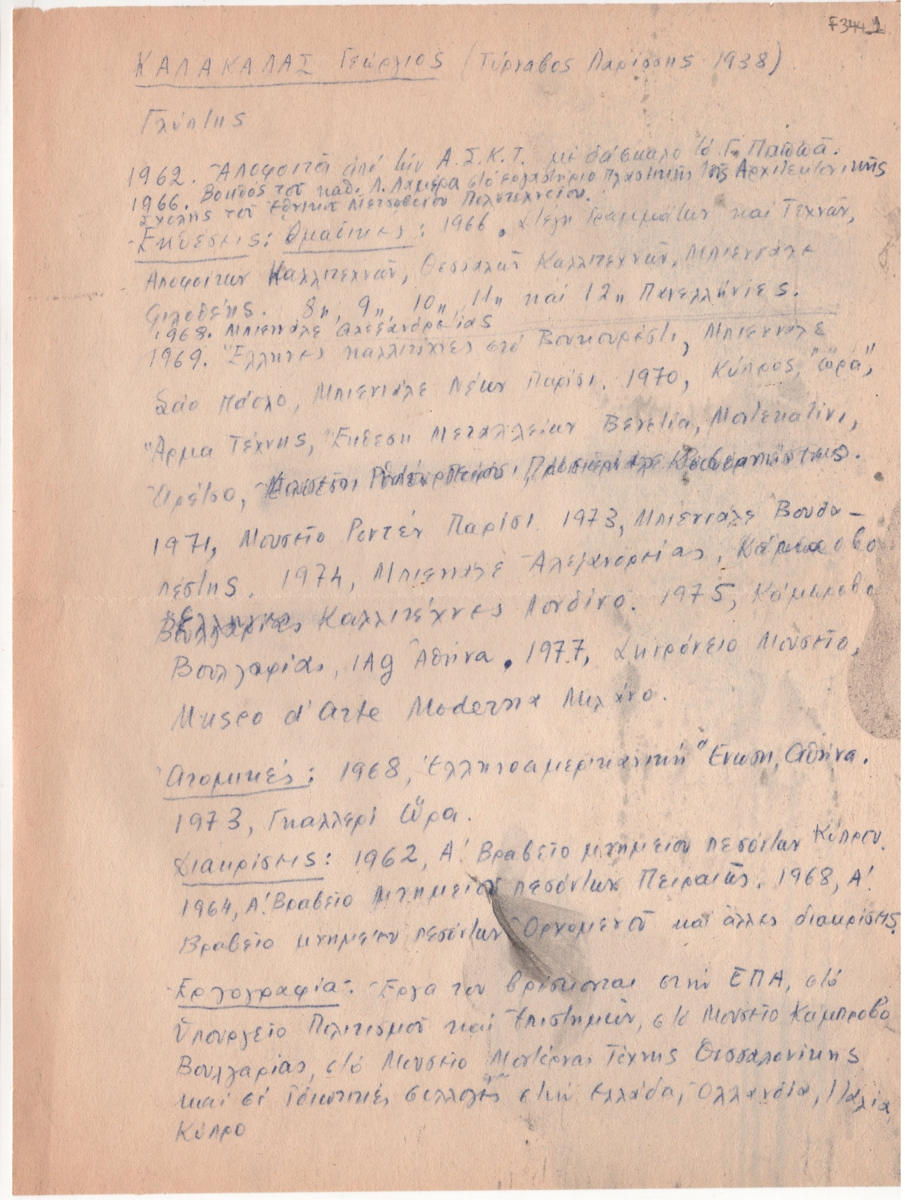 F344_1
ΚΑΛΑΚΑΛΑΣ Γεώργιος (Τύρναβος Λαρίσσης 1938)
Γλύπτης
1962. Ἀποφοιτᾶ ἀπό τήν Α.Σ.Κ.Τ. μέ δάσκαλο τό Γ. Παππᾶ.
1966. Βοηθός τοῦ καθ. Λ. Λαμέρα στό ἐργαστήριο πλαστικῆς τῆς Ἀρχιτεκτονικῆς
Σχολῆς τοῦ Ἐθνικοῦ Μετσοβείου Πολυτεχνείου.
Ἐκθέσεις: Ὁμαδικές: 1966, Στέγη Γραμμάτων καί Τεχνῶν,
Ἀποφοίτων Καλλιτεχνῶν, Θεσσαλῶν Καλλιτεχνῶν, Μπιεννάλε
Φιλοθέης. 8η, 9η, 10η, 11η καί 12η Πανελλήνιες.
1968. Μπιενάλε Ἀλεξάνδρειας
1969. Ἕλληνες καλλιτέχνες στό Βουκουρέστι, Μπιεννάλε
Σάο Πάολο, Μπιενάλε Νέων Παρίσι. 1970, Κύπρος, "ὥρα",
"Ἅρμα Τέχνης, Ἔκθεση Μεταλλείων Βενετία, Μοντεκατίνι,
Ἀρέτσο,
1971, Μουσεῖο Ροντέν Παρίσι. 1973, Μπιενάλε Βουδα-
πέστης. 1974, Μπιενάλε Ἀλεξανδρείας,
Καλλιτέχνες Λονδίνο. 1975, Κάμπροβο
Βουλγαρίας, IAG Ἀθήνα. 1977, Σκιρόνειο Μουσεῖο,
Museo d'Arte Moderna Μιλάνο.
Ἀτομικές: 1968, Ἑλληνοαμερικανική Ἕνωση, Ἀθήνα.
1973, Γκαλλερί Ὥρα.
Διακρίσεις: 1962, Α! Βραβεῖο μνημείου πεσόντων Κύπρου.
1964, Α! Βραβεῖο Μνημείου πεσόντων Πειραιῶς. 1968, Α!
Βραβεῖο μνημείου πεσόντων Ὀρχομενοῦ καί ἄλλες διακρίσεις.
Ἐργογραφία: Ἔργα του βρίσκονται στήν ΕΠΑ, στό
Ὑπουργεῖο Πολιτισμοῦ καί Ἐπιστημῶν, στό Μουσεῖο Κάμπροβο
Βουλγαρίας, στό Μουσεῖο Μοντέρνας Τέχνης Θεσσαλονίκης
καί σέ ἰδιωτικές συλλογές στήν Ἑλλάδα, Ὁλλανδία, Ἰταλία,
Κύπρο